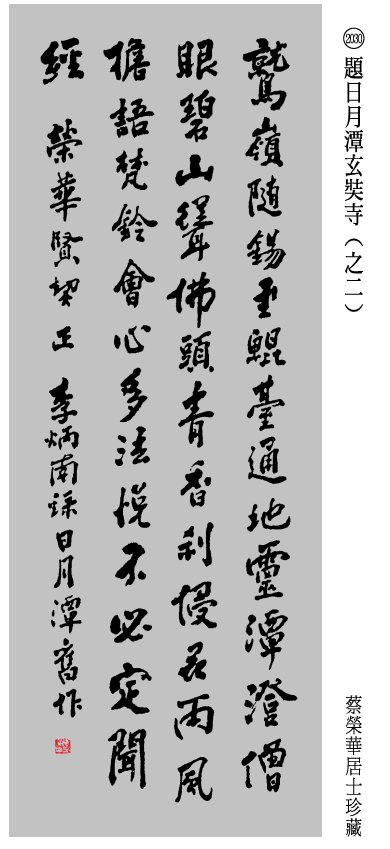 2030 題日月潭玄奘寺（之二）
鷲嶺隨錫至鯤臺通地靈潭澄僧
眼碧山聳佛頭青香剎雨風
檐語梵鈴會心多法悅不必定聞
經 榮華賢契正 李炳南錄日月潭舊作
蔡榮華居士珍藏